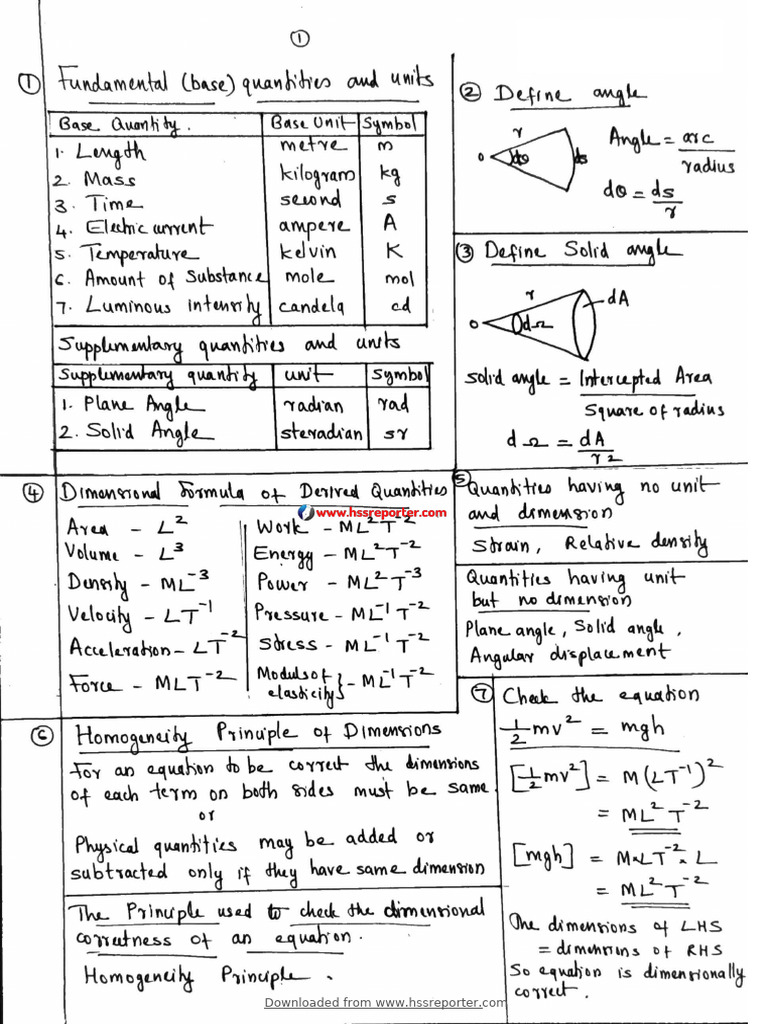 ①
① Fundamental (base) quantities and units
Base Quantity. Base Unit Symbol
1. Length metre m
2. Mass kilogram kg
3. Time second s
4. Electric current ampere A
5. Temperature kelvin K
6. Amount of Substance mole mol
7. Luminous intensity candela cd
Supplementary quantities and units
Supplementary quantity unit Symbol
1. Plane Angle radian rad
2. Solid Angle steradian sr
② Define angle
r
o dθ ds
Angle = arc
radius
dθ = ds
r
③ Define Solid angle
r dA
o dΩ
Solid angle = Intercepted Area
Square of radius
dΩ = dA
r2
④ Dimensional formula of Derived Quantities
www.hssreporter.com
Area - L²
Volume - L³
Density - ML⁻³
Velocity - LT⁻¹
Acceleration - LT⁻²
Force - MLT⁻²
Work - ML²T⁻²
Energy - ML²T⁻²
Power - ML²T⁻³
Pressure - ML⁻¹T⁻²
Stress - ML⁻¹T⁻²
Modulsof
elasticity} - ML⁻¹T⁻²
⑤ Quantities having no unit
and dimension
Strain, Relative density
Quantities having unit
but no dimension
Plane angle, Solid angle,
Angular displacement
⑥ Homogeneity Principle of Dimensions
For an equation to be correct the dimensions
of each term on both sides must be same
or
Physical quantities may be added or
subtracted only if they have same dimension
The Principle used to check the dimensional
correctness of an equation.
Homogeneity Principle.
⑦ Check the equation
½mv² = mgh
[½mv²] = M(LT⁻¹)²
= ML²T⁻²
[mgh] = M×LT⁻²×L
= ML²T⁻²
The dimensions of LHS
= dimensions of RHS
So equation is dimensionally
correct.
Downloaded from www.hssreporter.com